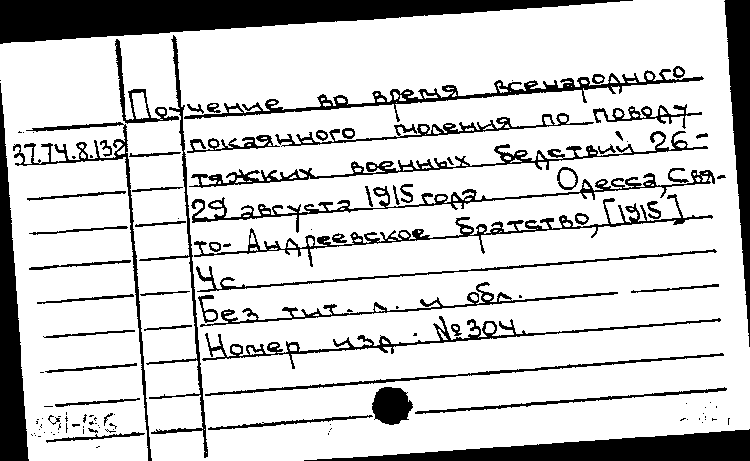 Поучение во время всенародного
37.74.8.132 покаянного моления по поводу
тяжских военных бедствий 26-
29 августа 1915 года. Одесса, Свя-
то-Андреевское братство, [1915]
4с.
Без тит. л. и обл.
Номер изд.: №304.